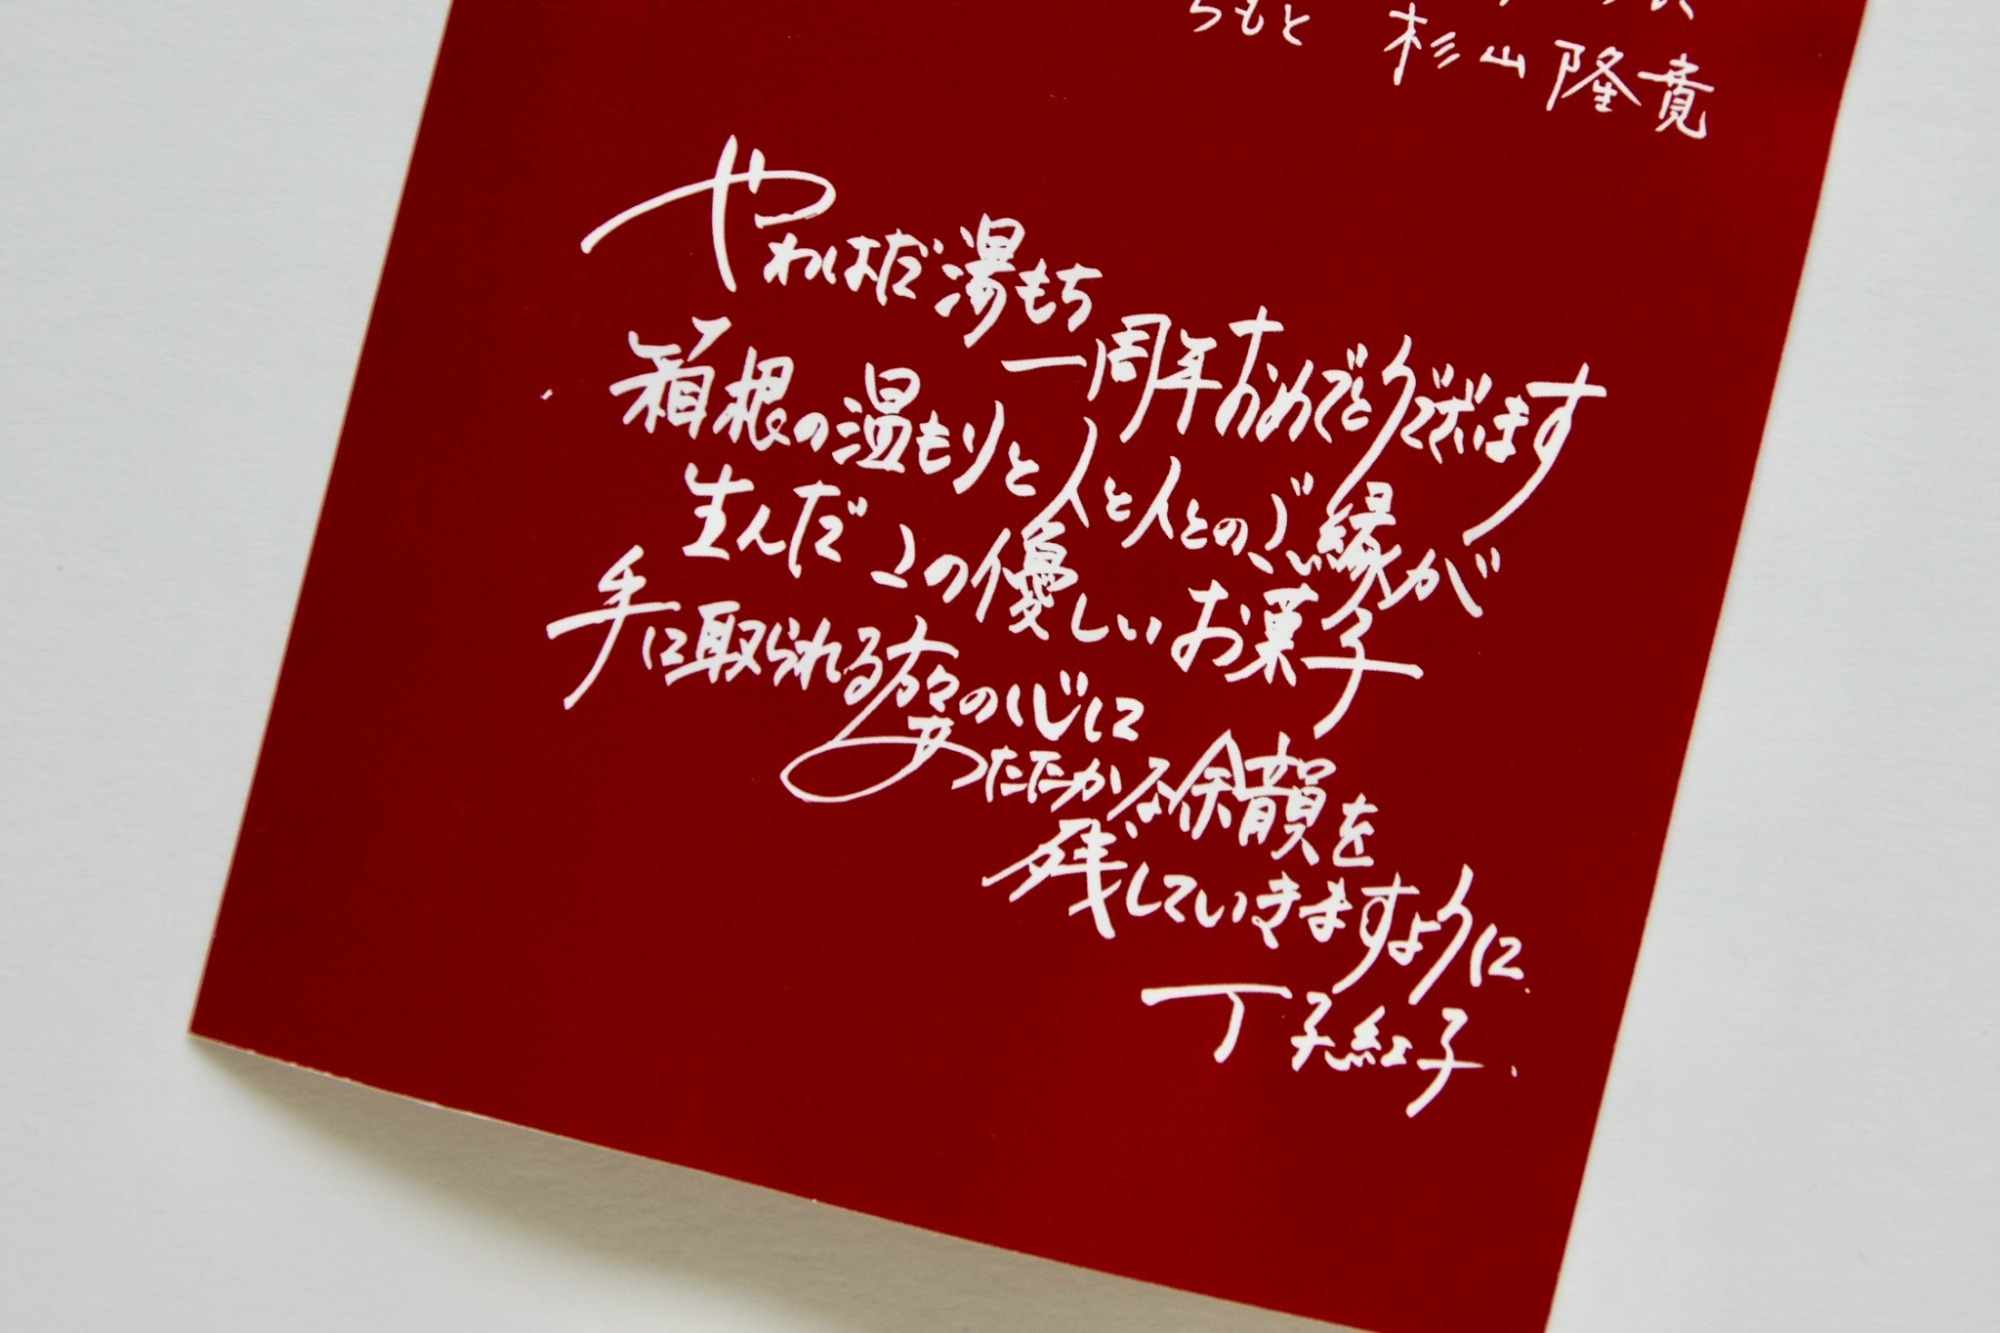 ちもと 杉山隆寛
やわはだ湯もち
一周年おめでとうございます
箱根の温もりと人と人とのご縁が
生んだこの優しいお菓子
手に取られる方々の心に
あたたかな余韻を
残していきますように.
丁子紅子.